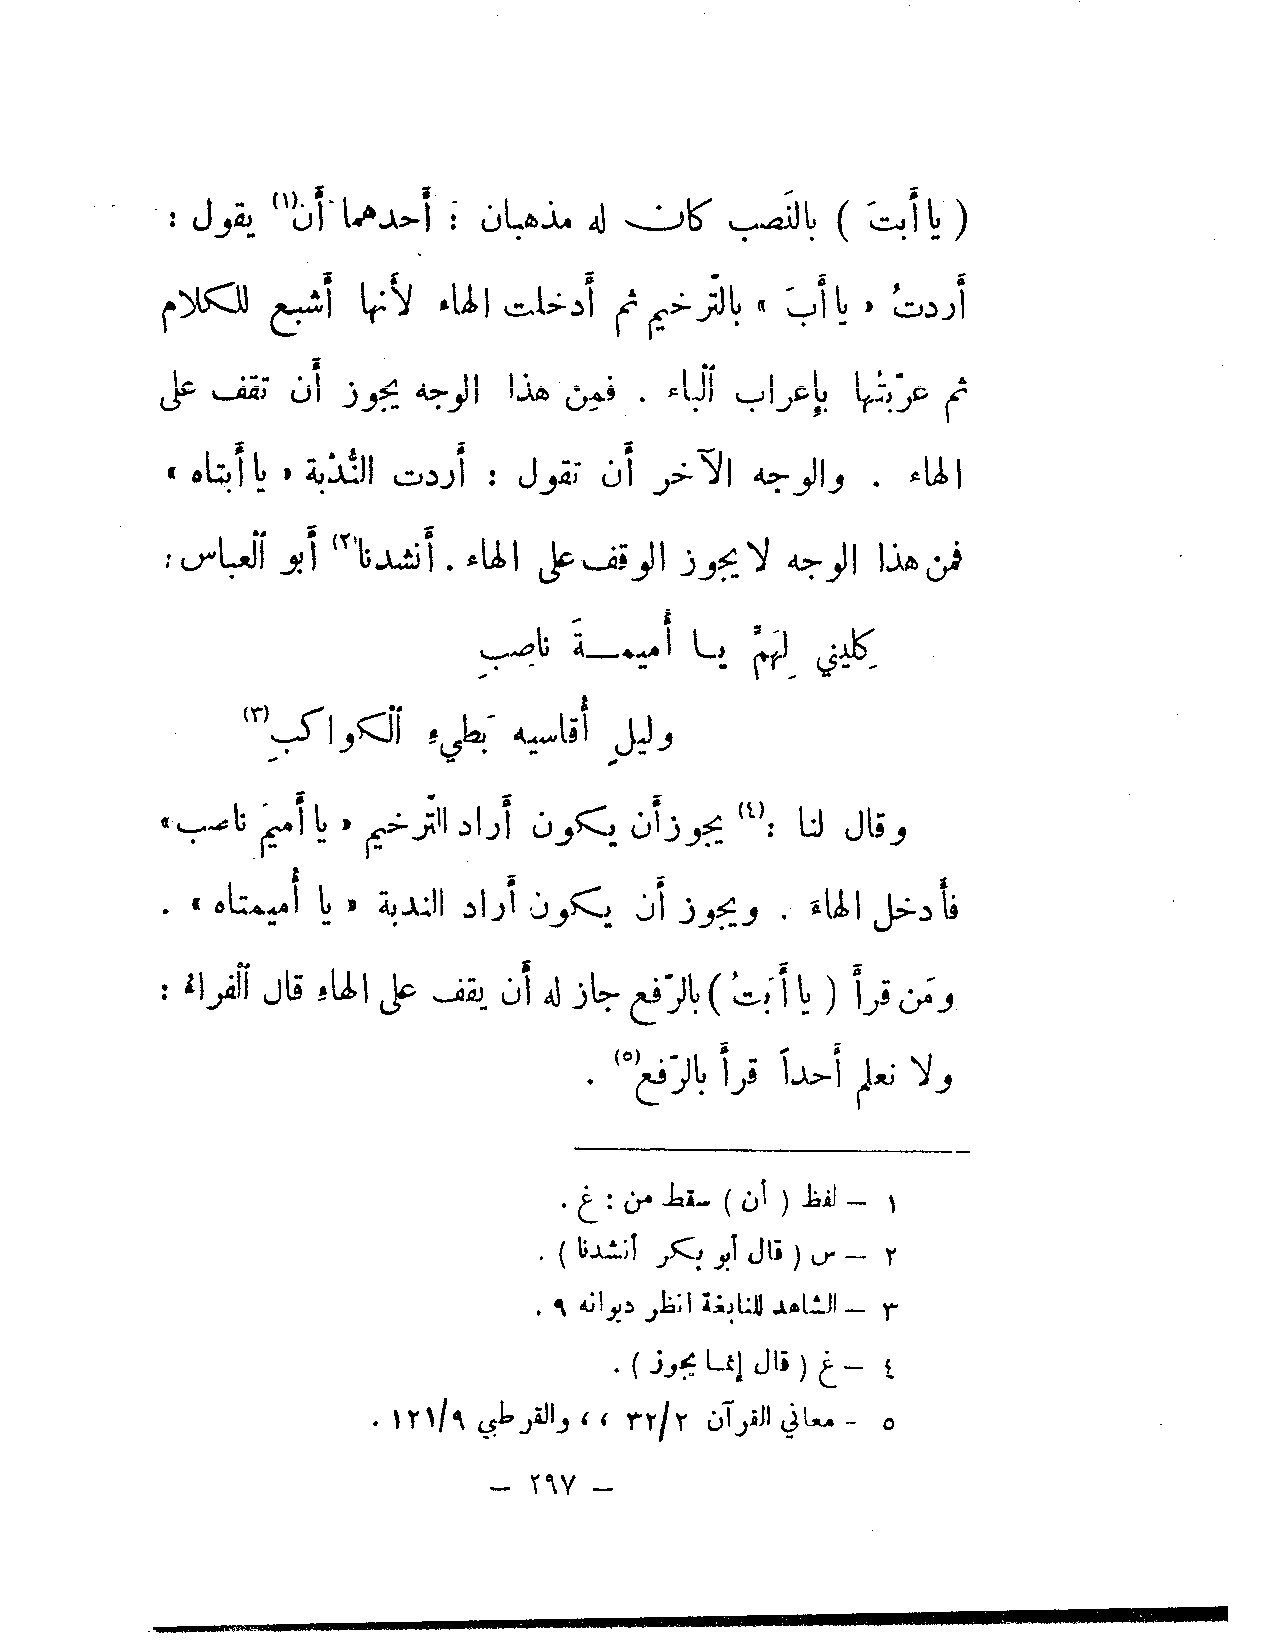 ( يا أَبتَ ) بالنَصب كان له مذهبان : أَحدهما أَن(١) يقول :
أَردتُ « يا أَبَ » بالتّرخيم ثم أَدخلت الهاء لأَنها أَشبع للكلام
ثم عرّبتُها بإعراب ٱلباء . فمِن هذا الوجه يجوز أَن تقف على
الهاء . والوجه الآخر أَن تقول : أَردت النُّدْبة « يا أَبتاه »
فمن هذا الوجه لا يجوز الوقف على الهاء . أَنشدنا(٢) أَبو ٱلعباس :
كِليني لِهَمٍّ يا أُميمةَ ناصِبِ
وليلٍ أُقاسيه بَطيءِ ٱلكواكبِ(٣)
وقال لنا :(٤) يجوز أَن يكون أَراد التّرخيم « يا أَميمَ ناصب »
فأَدخل الهاءَ . ويجوز أَن يكون أَراد الندبة « يا أُميمتاه » .
ومَن قرأَ ( يا أَبَتُ ) بالرّفع جاز له أَن يقف على الهاءِ قال ٱلفراءُ :
ولا نعلم أَحداً قرأَ بالرّفع(٥) .
١ – لفظ ( أن ) سقط من : غ .
٢ – س ( قال أبو بكر أنشدنا ) .
٣ – الشاهد للنابغة انظر ديوانه ٩ .
٤ – غ ( قال إنما يجوز ) .
٥ - معاني القرآن ٣٢/٢ ، ، والقرطبي ١٢١/٩ .
– ٢٩٧ –